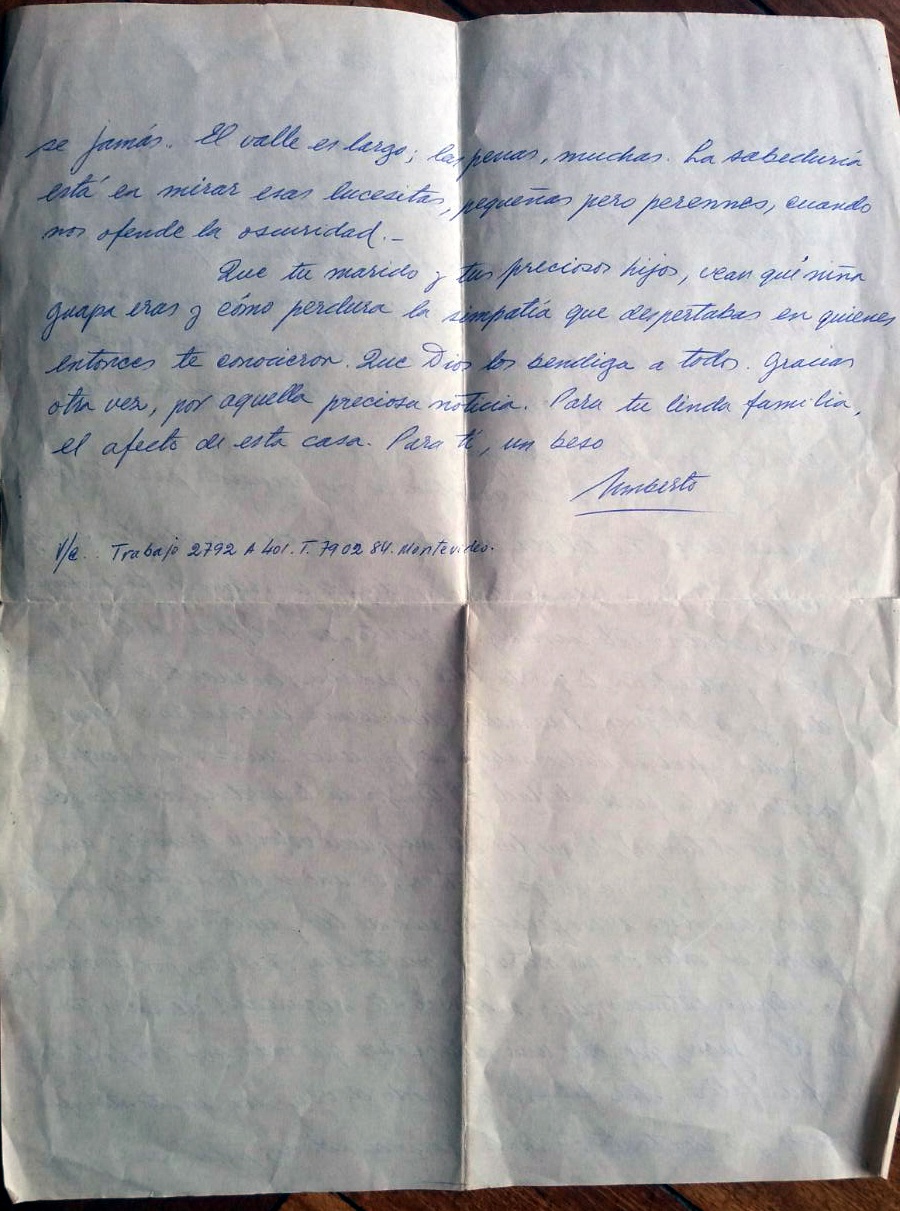 se jamás. El valle es largo; las penas, muchas. La sabeduría
está en mirar esas lucesitas, pequeñas pero perennes, cuando
nos ofende la oscuridad.-
Que tu marido y tus preciosos hijos, vean qué niña
guapa eras y cómo perdura la simpatía que despertabas en quienes
entonces te conocieron. Que Dios los bendiga a todos. Gracias
otra vez, por aquella preciosa noticia. Para tu linda familia,
el afecto de esta casa. Para tí, un beso
Umberto
V/c.. Trabajo 2792 A 401. T. 79 02 84. Montevideo.